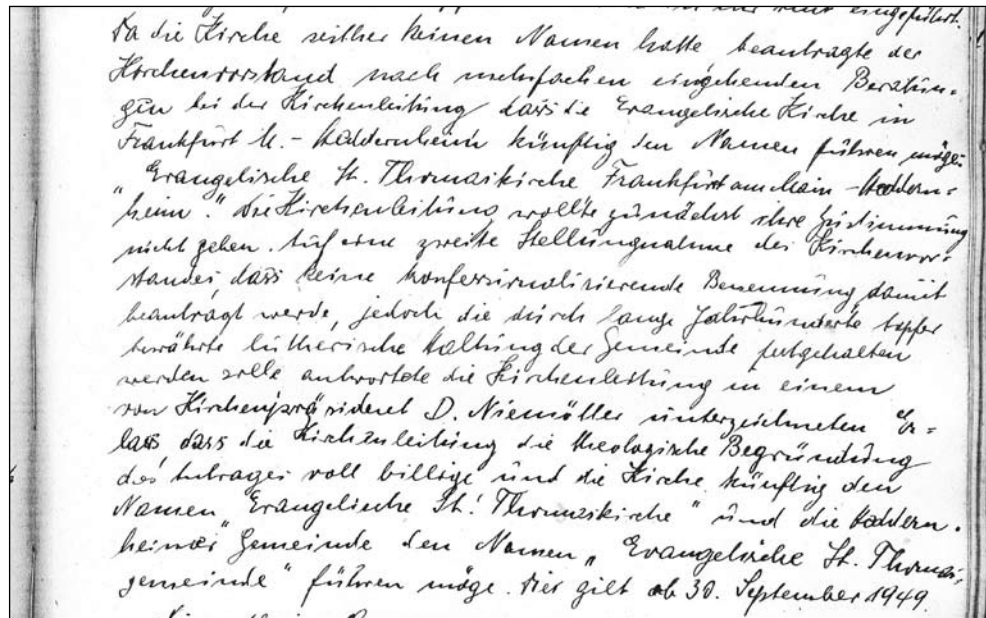 eingeführt.
Da die Kirche seither keinen Namen hatte beantragte der
Kirchenvorstand nach mehrfachen eingehenden Beratun-
gen bei der Kirchenleitung dass die Evangelische Kirche in
Frankfurt M. - Heddernheim künftig den Namen führen möge:
„Evangelische St. Thomaskirche Frankfurt am Main -Heddern-
heim." Die Kirchenleitung wollte zunächst ihre Zustimmung
nicht geben. Auf eine zweite Stellungnahme des Kirchenvor-
standes, dass keine konfessionalisierende Benennung damit
beantragt werde, jedoch die durch lange Jahrhunderte tapfer
bewährte lutherische Haltung der Gemeinde festgehalten
werden solle antwortete die Kirchenleitung in einem
von Kirchenpräsident D. Niemöller unterzeichneten Er-
lass dass die Kirchenleitung die theologische Begründung
des Antrages voll billige und die Kirche künftig den
Namen „Evangelische St. Thomaskirche" und die Heddern-
heimer Gemeinde den Namen „Evangelische St. Thomas-
gemeinde" führen möge. Dies gilt ab 30. September 1949.